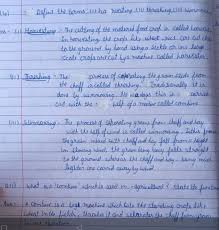 Define the terms : (i) Harvesting (ii) threshing (iii) winnowing
(i) Harvesting :- The cutting of the matured food crop is called harvesting
In harvesting the crops like wheat, rice are cut close
to the ground by hand using a sickle or in a large
scale crops are cut by a machine called harvester.
(ii) Threshing :- The process of separating the grain seeds from
the chaff is called threshing. Traditionally it is
done by
out with the help of a machine called combine
(iii) Winnowing :- The process of separating grains from chaff and hay
with the help of wind is called winnowing.
the grains mixed with chaff and hay fall from a height
in blowing wind, the grain being
to the ground whereas the chaff and hay being much
lighter are carried away by wind.
What is a combine which is used in agriculture? State its function
Ans A combine is a machine which cuts the standing crops like
wheat in the fields, threshes it and separates the chaff from grain